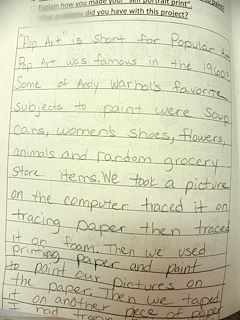 Explain how you made your "self portrait print".
What problems did you have with this project?
"Pop Art" is short for Popular Art
Pop Art was famous in the 1960s.
Some of Andy Warhol's favorite
subjects to paint were soup
cans, women's shoes, flowers,
animals and random grocery
store items. We took a picture
on the computer traced it on
tracing paper then traced
it on foam. Then we used
printing paper and paint
to paint our pictures on
the paper. Then we taped
it on another piece of paper
I had